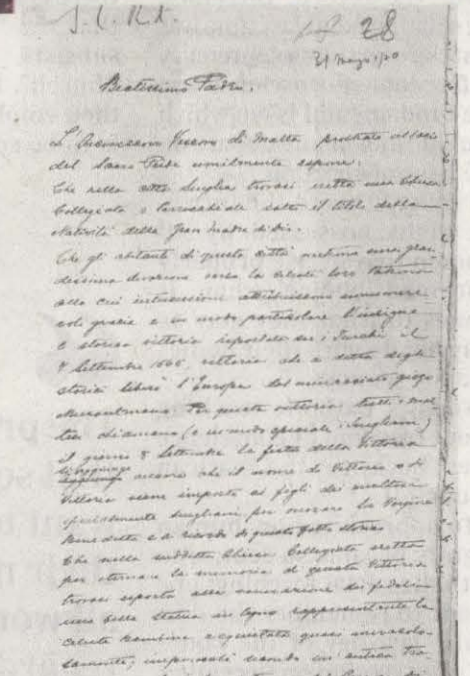 28
31 Marzo 1920
Beatissimo Padre,
L'Arcivescovo Vescovo di Malta prostrato al bacio
del Sacro Piede umilmente espone:
Che nella città Senglea trovasi eretta una Chiesa
Collegiata e Parrocchiale sotto il titolo della
Natività della Gran Madre di Dio.
Che gli abitanti di questa città nutrono una gran
dissima divozione verso la celeste loro Patrona
alla cui intercessione attribuiscono innumere
voli grazie e in modo particolare l'insigne
e storica vittoria riportata sui Turchi il
8 Settembre 1565, vittoria che a detta degli
storici liberò l'Europa dal minacciato giogo
Per questa vittoria tutti i mal
tesi chiamano (e in modo speciale i Sengleani)
il giorno 8 Settembre la festa della Vittoria
ancora che il nome di Vittorio o di
Vittoria viene imposto ai figli dei maltesi
specialmente sengleani per onorare la Vergine
Benedetta e a ricordo di questo fatto storico.
Che nella suddetta Chiesa Collegiata eretta
per eternare la memoria di questa Vittoria
trovasi esposta alla venerazione dei fedeli
una bella statua in legno rappresentante la
celeste Bambina acquistata quasi miracolo
samente, secondo un' antica tra